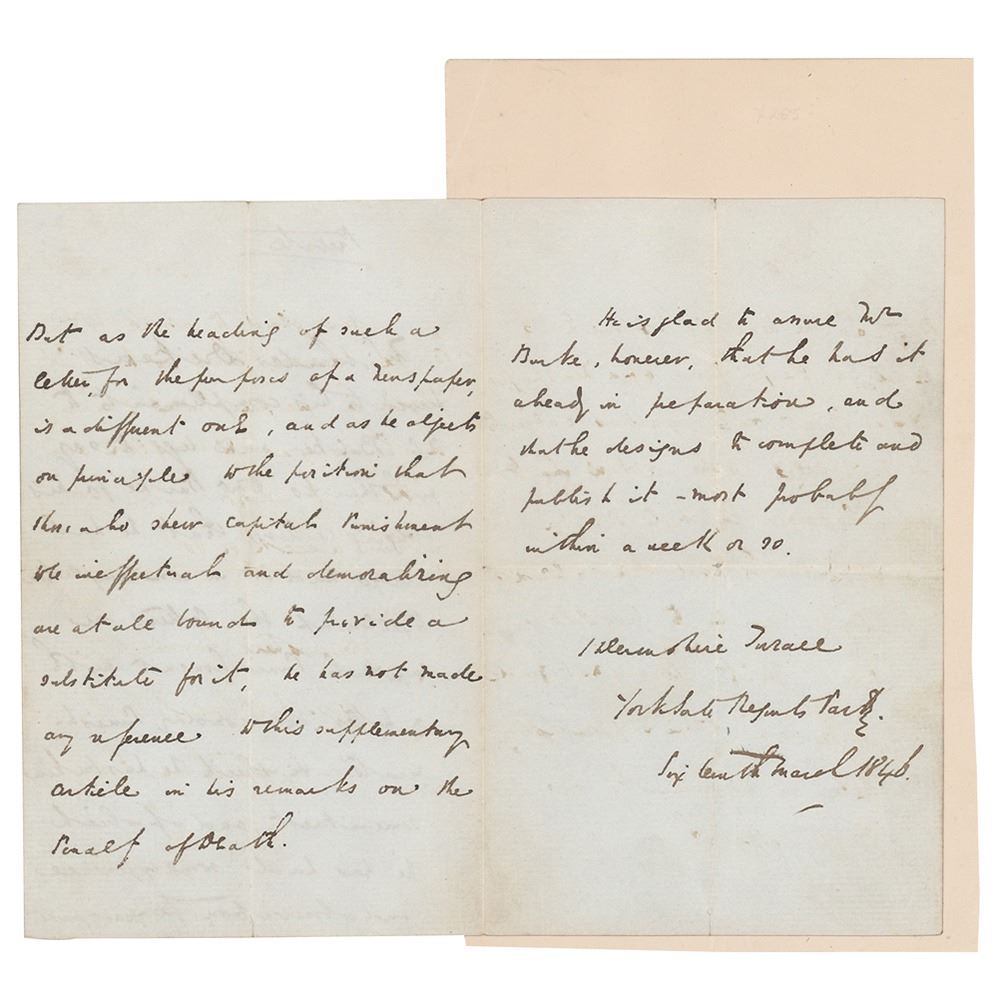 But as the heading of such a
letter, for the purposes of a Newspaper,
is a different one, and as he objects
on principle to the position that
those who shew capital Punishment
to be ineffectual and demoralizing
are at all bound to provide a
substitute for it, he has not made
any reference to this supplementary
article in his remarks on the
Penalty of Death.
He is glad to assure Mr
Burke, however, that he has it
already in preparation, and
that he designs to complete and
publish it - most probably
within a week or so.
1 Devonshire Terrace
York Gate Regents Park.
Sixteenth March 1846.
Private